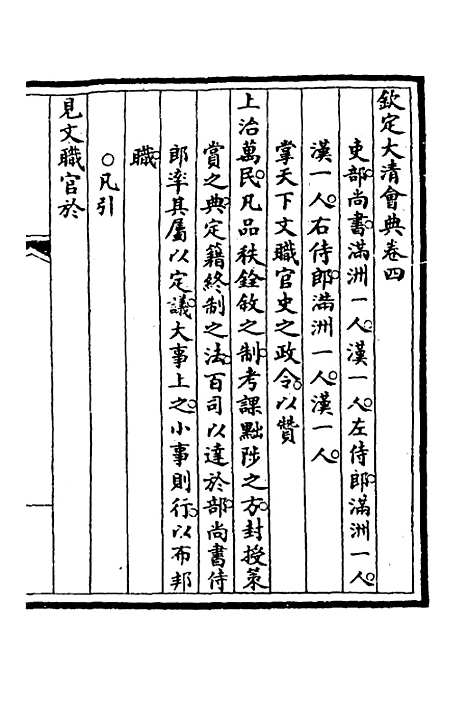 欽定大清會典卷四
吏部尚書滿洲一人。漢一人。左侍郎滿洲一人。
漢一人。右侍郎滿洲一人。漢一人。
掌天下文職官吏之政令。以贊
上治萬民。凡品秩銓敘之制。考課黜陟之方。封授策
賞之典。定籍終制之法。百司以達於部。尚書侍
郎率其屬以定議。大事上之。小事則行。以布邦
職。
○凡引
見文職官於